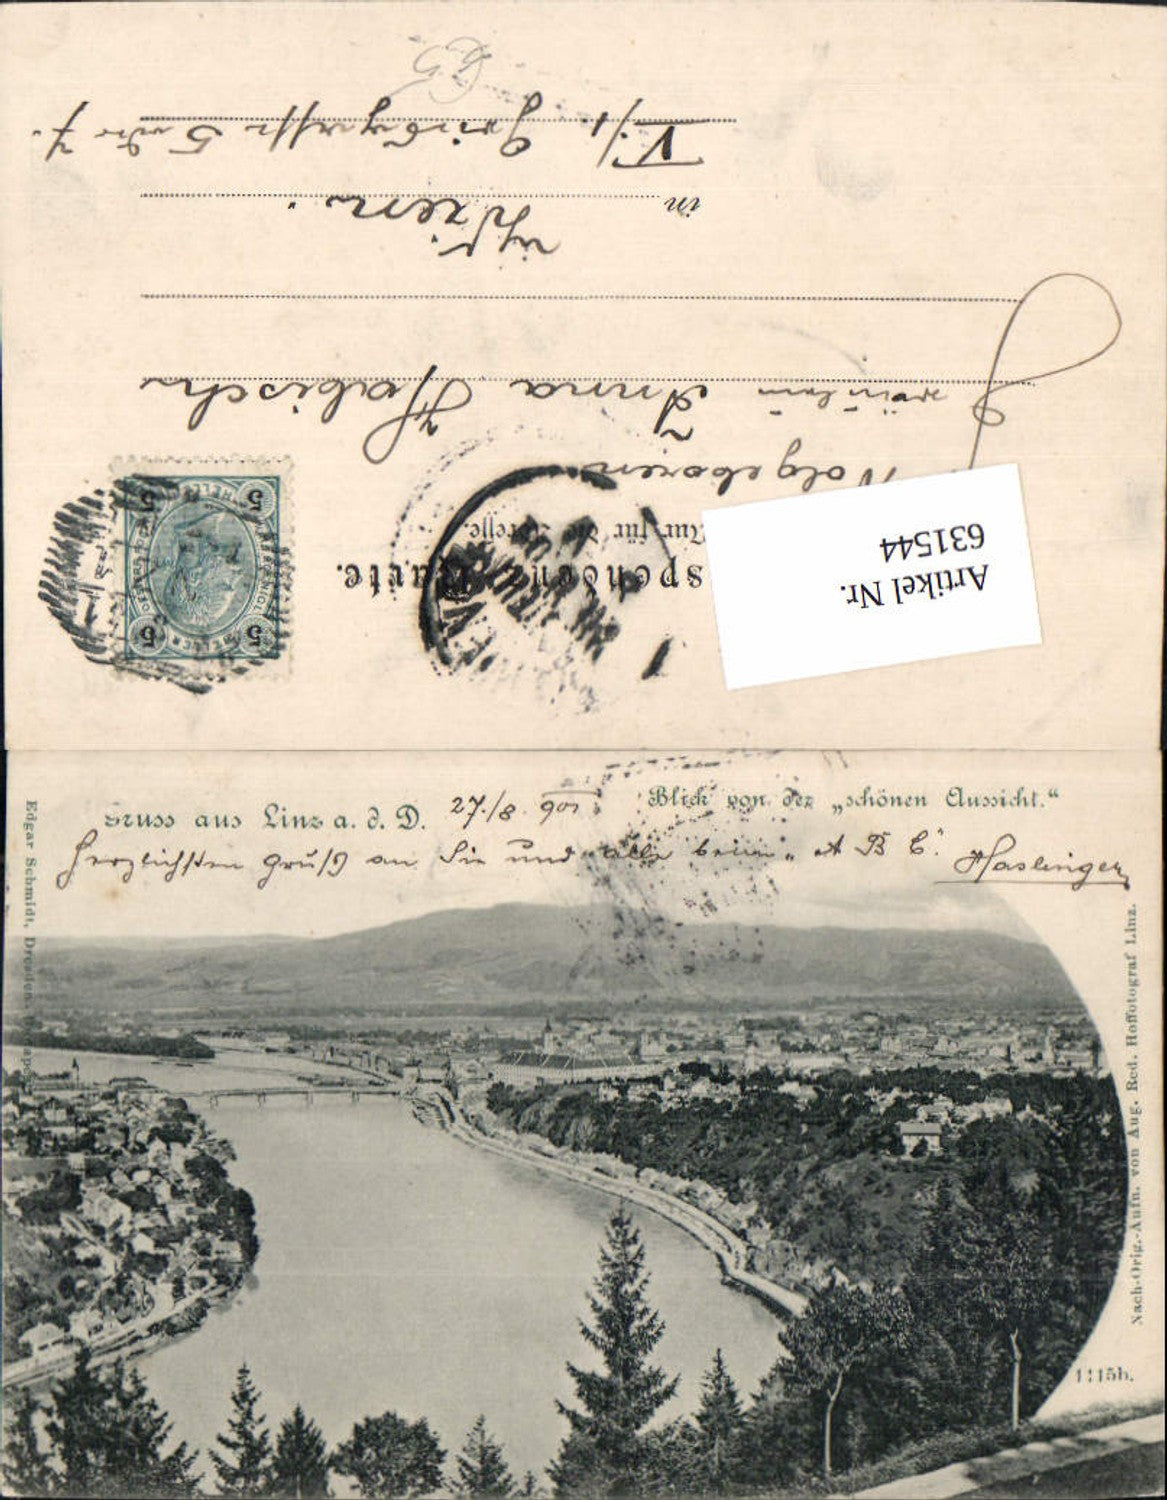 Artikel Nr.
631544
Nur für die Adresse.
Wolgeboren
Fräulein Anna Habisch
in Wien.
V./1.
5
HELLER
Gruss aus Linz a. d. D. 27./8. 901
Blick von der „schönen Aussicht.“
Herzlichsten Gruß an Sie und alle beim „A B C“. Haslinger
Edgar Schmidt, Dresden
Nach-Orig.-Aufn. von Aug. Red. Hoffotograf Linz.
1115b.